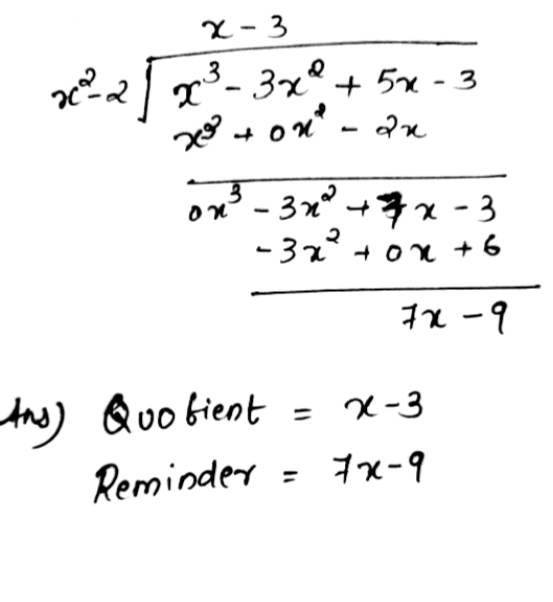 x - 3
x² - 2 ) x³ - 3x² + 5x - 3
x³ + 0x² - 2x
0x³ - 3x² + 7x - 3
- 3x² + 0x + 6
7x - 9
Ans) Quotient = x - 3
Reminder = 7x - 9